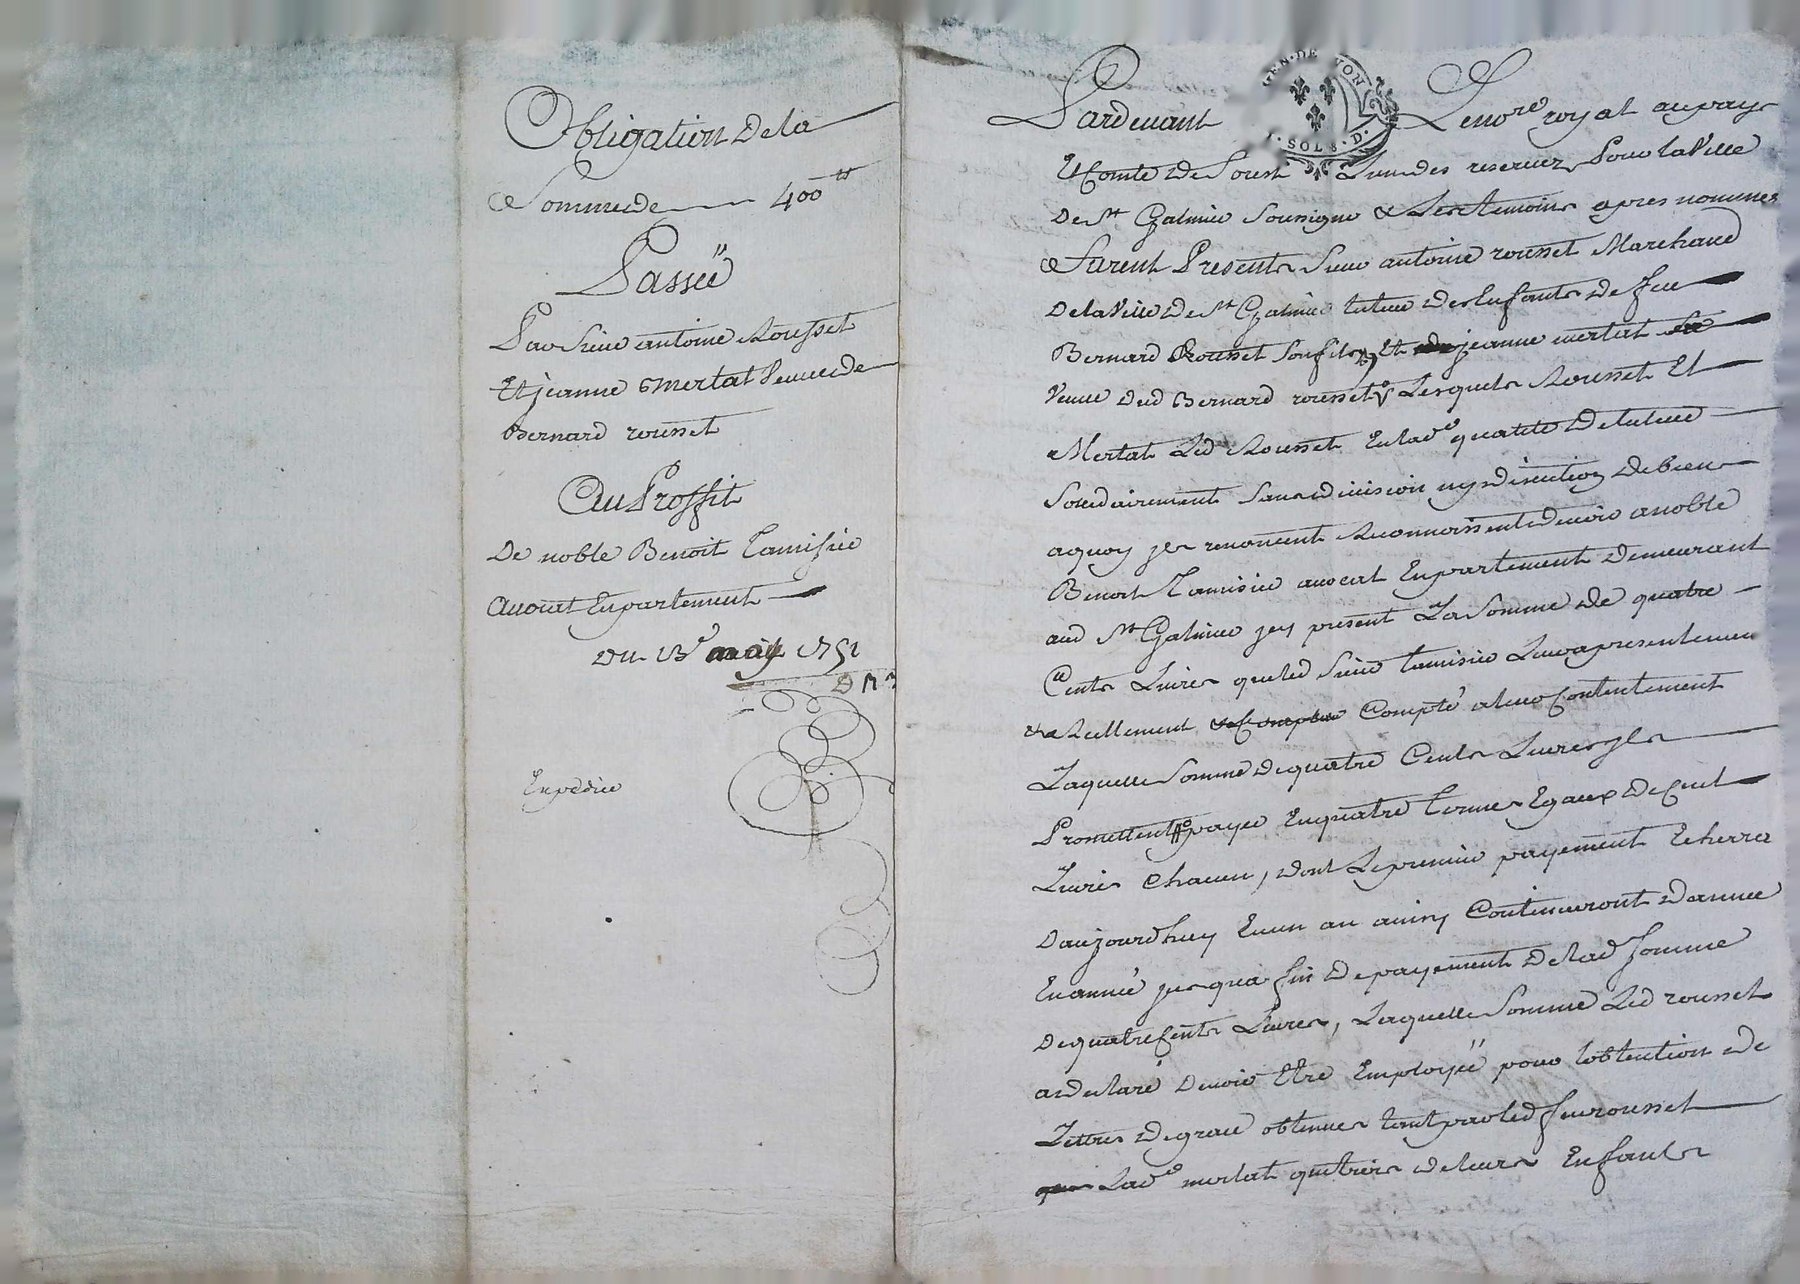 Obligation De la
Somme de 400ᵗᵗ
Passeë
Par Sieur antoine Rousset
Et jeanne mertat veuve de
Bernard rousset
Au Proffit
De noble Benoit Tamisier
Avocat En parlement
Du 13ᵉ may 1751
Expediée
GEN. DE LYON
SOLS. D.
Pardevant Le noʳᵉ royal au pays
Et Comté De Forest Lun des reservez Pour la Ville
De Sᵗ Galmier Soussigné & Les temoins apres nommes
Furent Presents Sieur antoine rousset Marchand
De la Ville De Sᵗ Galmier tuteur Des Enfants De feu
Bernard Rousset Son fils, Et jeanne mertat
Veuve dud Bernard rousset Lesquels Rousset Et
Mertat Led Rousset En lad qualité De tuteur
Solidairement Sans division ny discution De biens
a quoy jls renoncent Reconnoissent Devoir a noble
Benoit Tamisier avocat En parlement Demeurant
aud Sᵗ Galmier jcy present La Somme De quatre
Cents Livres que led Sieur tamisier Leur a presentement
& Reellement Compté a leur Contentement
Laquelle Somme De quatre Cents Livres jls
Promettent payer En quatre termes Egaux De Cent
Livres Chacun, dont Le premier payement Echerra
Daujourdhuy En un an ainsy Continueront Dannée
En année jusqua fin De payement De lad Somme
De quatre Cents Livres, Laquelle Somme Led rousset
a declaré Devoir Etre Employeë pour lobtention De
Lettres De grace obtenues tant par led feu rousset
Lad mertat que trois de leurs Enfants